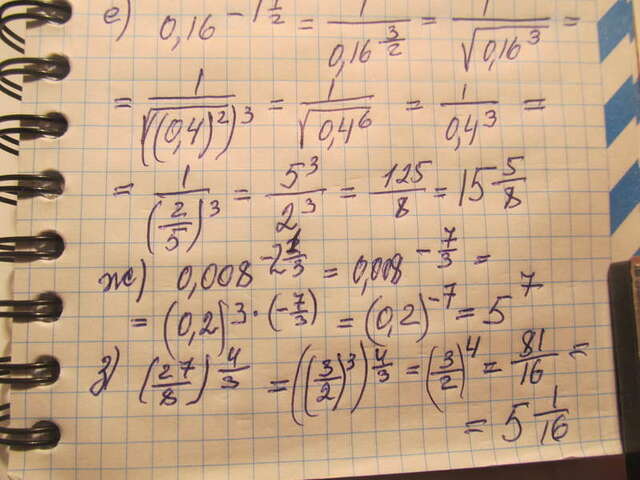 е) 0,16^{-1\frac{1}{2}} = \frac{1}{0,16^{\frac{3}{2}}} = \frac{1}{\sqrt{0,16^3}} =
= \frac{1}{\sqrt{((0,4)^2)^3}} = \frac{1}{\sqrt{0,4^6}} = \frac{1}{0,4^3} =
= \frac{1}{(\frac{2}{5})^3} = \frac{5^3}{2^3} = \frac{125}{8} = 15\frac{5}{8}
ж) 0,008^{-2\frac{1}{3}} = 0,008^{-\frac{7}{3}} =
= (0,2)^{3·(-\frac{7}{3})} = (0,2)^{-7} = 5^7
з) (\frac{27}{8})^{\frac{4}{3}} = ((\frac{3}{2})^3)^{\frac{4}{3}} = (\frac{3}{2})^4 = \frac{81}{16} =
= 5\frac{1}{16}